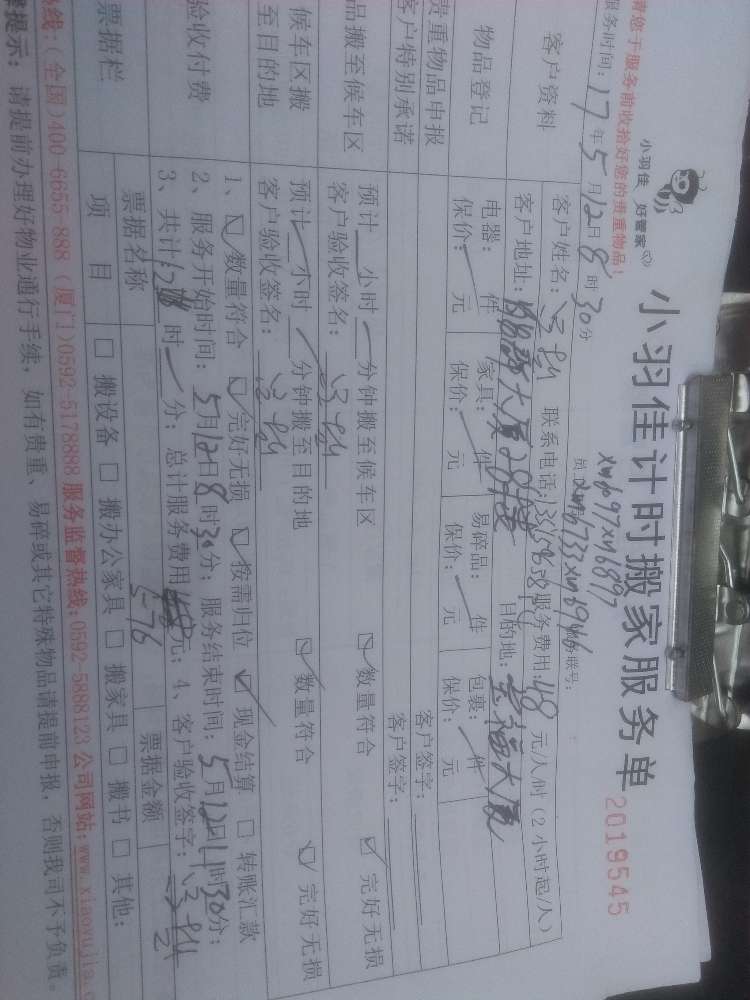 小羽佳 好管家
小羽佳计时搬家服务单
2019545
请您于服务前收拾好您的贵重物品！
服务时间：17年5月12日8时30分
客户资料
客户姓名：
联系电话：
服务费用：48元/人/时（2小时起/人）
客户地址：
目的地：幸福大厦
物品登记
电器： 件 家具： 件 易碎品： 件 包裹： 件
保价： 元 保价： 元 保价： 元 保价： 元
贵重物品申报
客户签字：
客户特别承诺
客户签字：
品搬至候车区
预计 小时 分钟搬至候车区 数量符合 完好无损
客户验收签名：
候车区搬
至目的地
预计 小时 分钟搬至目的地 数量符合 完好无损
客户验收签名：
验收付费
1、 数量符合 完好无损 按需归位 现金结算 □ 转账汇款
2、服务开始时间：5月12日8时30分；服务结束时间：5月12日11时30分；
3、共计： 时 分；总计服务费用 元；4、客户验收签字：
576
票据栏
票据名称
票据金额
项 目
□ 搬设备 □ 搬办公家具 □ 搬家具 □ 搬书 □ 其他：
热线：(全国)400-6655-888 (厦门)0592-5178888 服务监督热线：0592-5888123 公司网站：www.xiaoyujia.c
提示：请提前办理好物业通行手续，如有贵重、易碎或其它特殊物品请提前申报，否则我司不予负责。